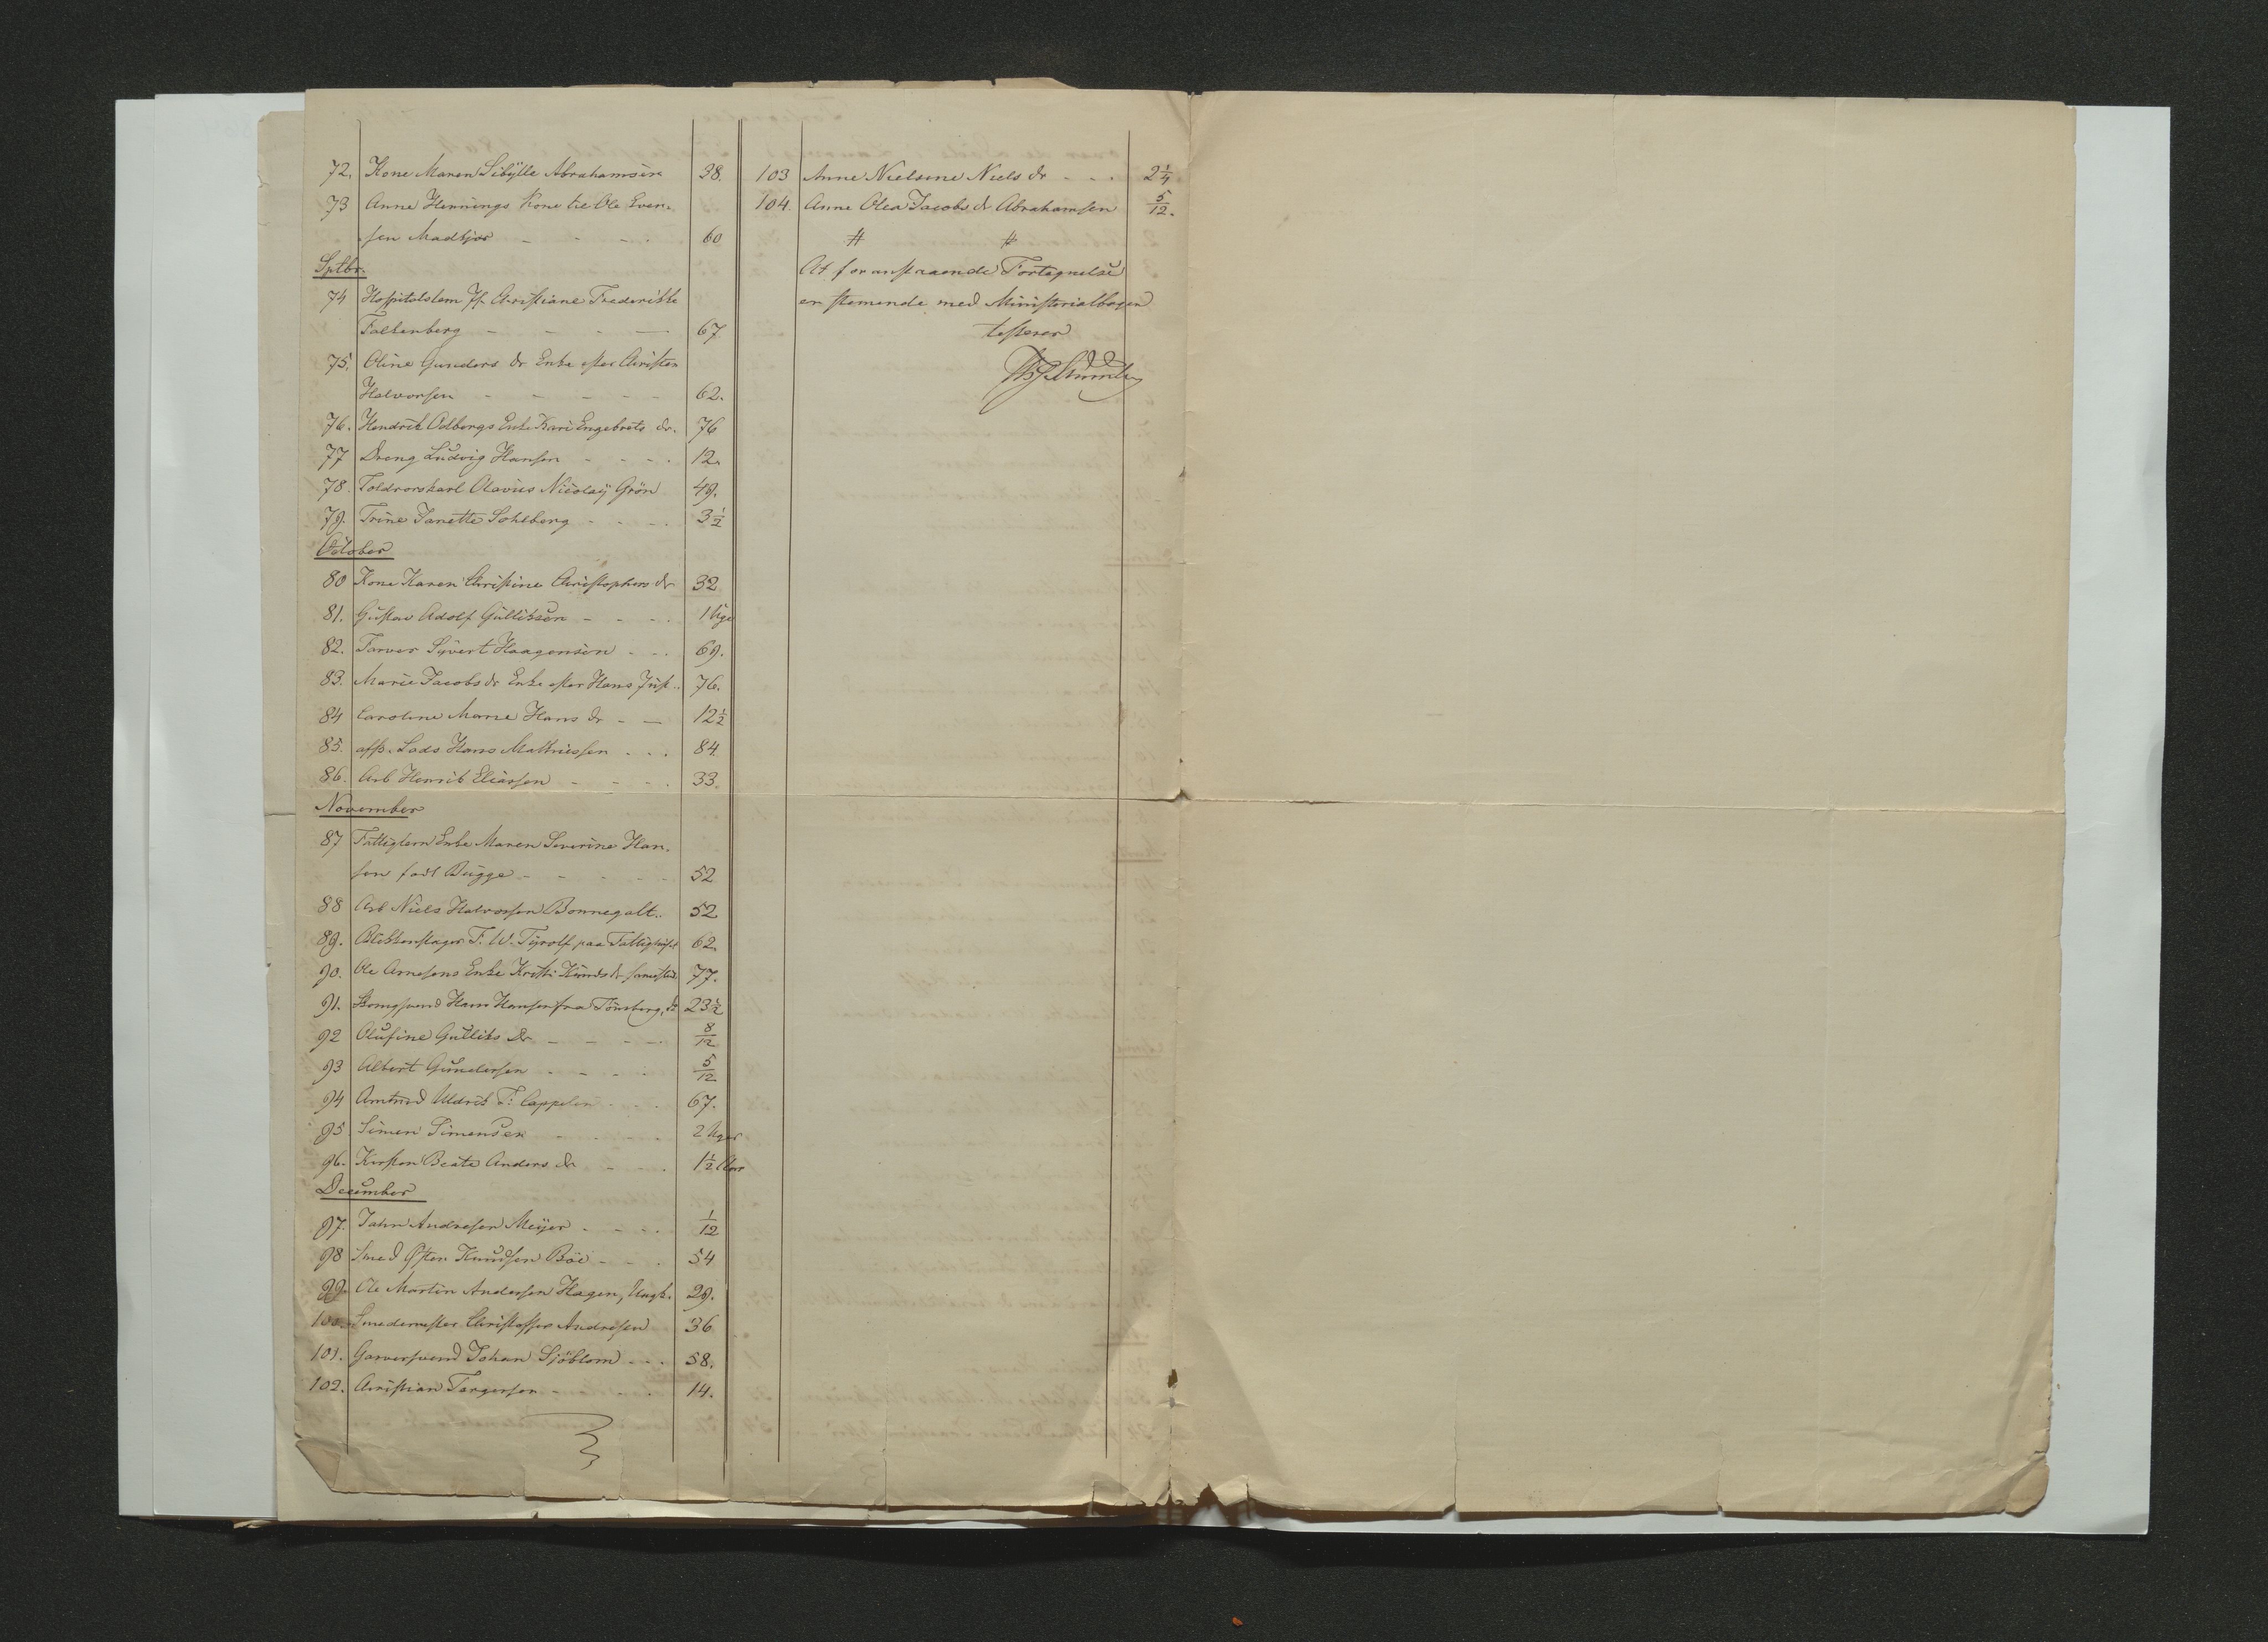 72. Kone Maren Sibÿlle Abrahamsen 38.
73 Anne Hennings Kone til Ole Even-
sen Madkjør - - - - 60
Sptbr.
74 Hospitalslem Jf. Christiane Frederikke
Falkenberg - - - - 67
75. Oline Gunders dr Enke efter Christen
Halvorsen - - - - - 62.
76. Hendrik Oelbergs Enke Kari Engebrets dr. 76
77 Dreng Ludvig Hansen - - - - 12.
78. Toldroerskarl Olavus Nicolaÿ Grön 49.
79. Trine Janette Solberg - - - - 3 1/2
October
80 Kone Karen Christine Christophers dr 32
81. Gustav Adolf Gullicksen - - - - 1 Uge
82. Farver Sÿvert Haagensen - - - 69.
83. Marie Jacobs dr Enke efter Hans Just.. 76.
84 Caroline Marie Hans dr - - 12 1/2
85. afsk. Lods Hans Mathiessen - - - 84
86. Arb Henrik Eliassen - - - - 33.
November
87 Fattiglem Enke Maren Severine Han-
sen født Bugge - - - - - 52
88 Arb Niels Halvorsen Bonnegalt.. 52
89. Blikkenslager F. W. Tÿrolf paa Fattighuset 62.
90. Ole Arnesens Enke Kristi Knuds dr samested 77.
91. Hans Hansen fra Tönsberg, 23 1/2
92 Olufine Gulliks Dr - - - - 8/12
93 Albert Gundersen - - - - 5/12
94 Amtmd Uldrik F: Cappelen - - - 67.
95 Simen Simensen - - - - 2 Uger
96. Kirsten Beate Anders dr - - - 1 1/2 Aar
December
97. Jahn Andresen Meÿer - - - - 1/12
98 Smed Østen Knudsen Böe - - - 54
99. Ole Martin Andersen Hagen, Ungk. 29.
100. Smedemester Christoffer Andresen 36
101. Garversvend Johan Sjöblom - - - 58.
102. Christian Torgersen - - - - 14.
103 Anne Nielsine Niels dr - - - 2 1/4
104. Anne Olea Jacobs dr Abrahamsen 5/12.
# #
At foranstaaende Fortegnelse
er stemende med Ministerialbogen
testerer